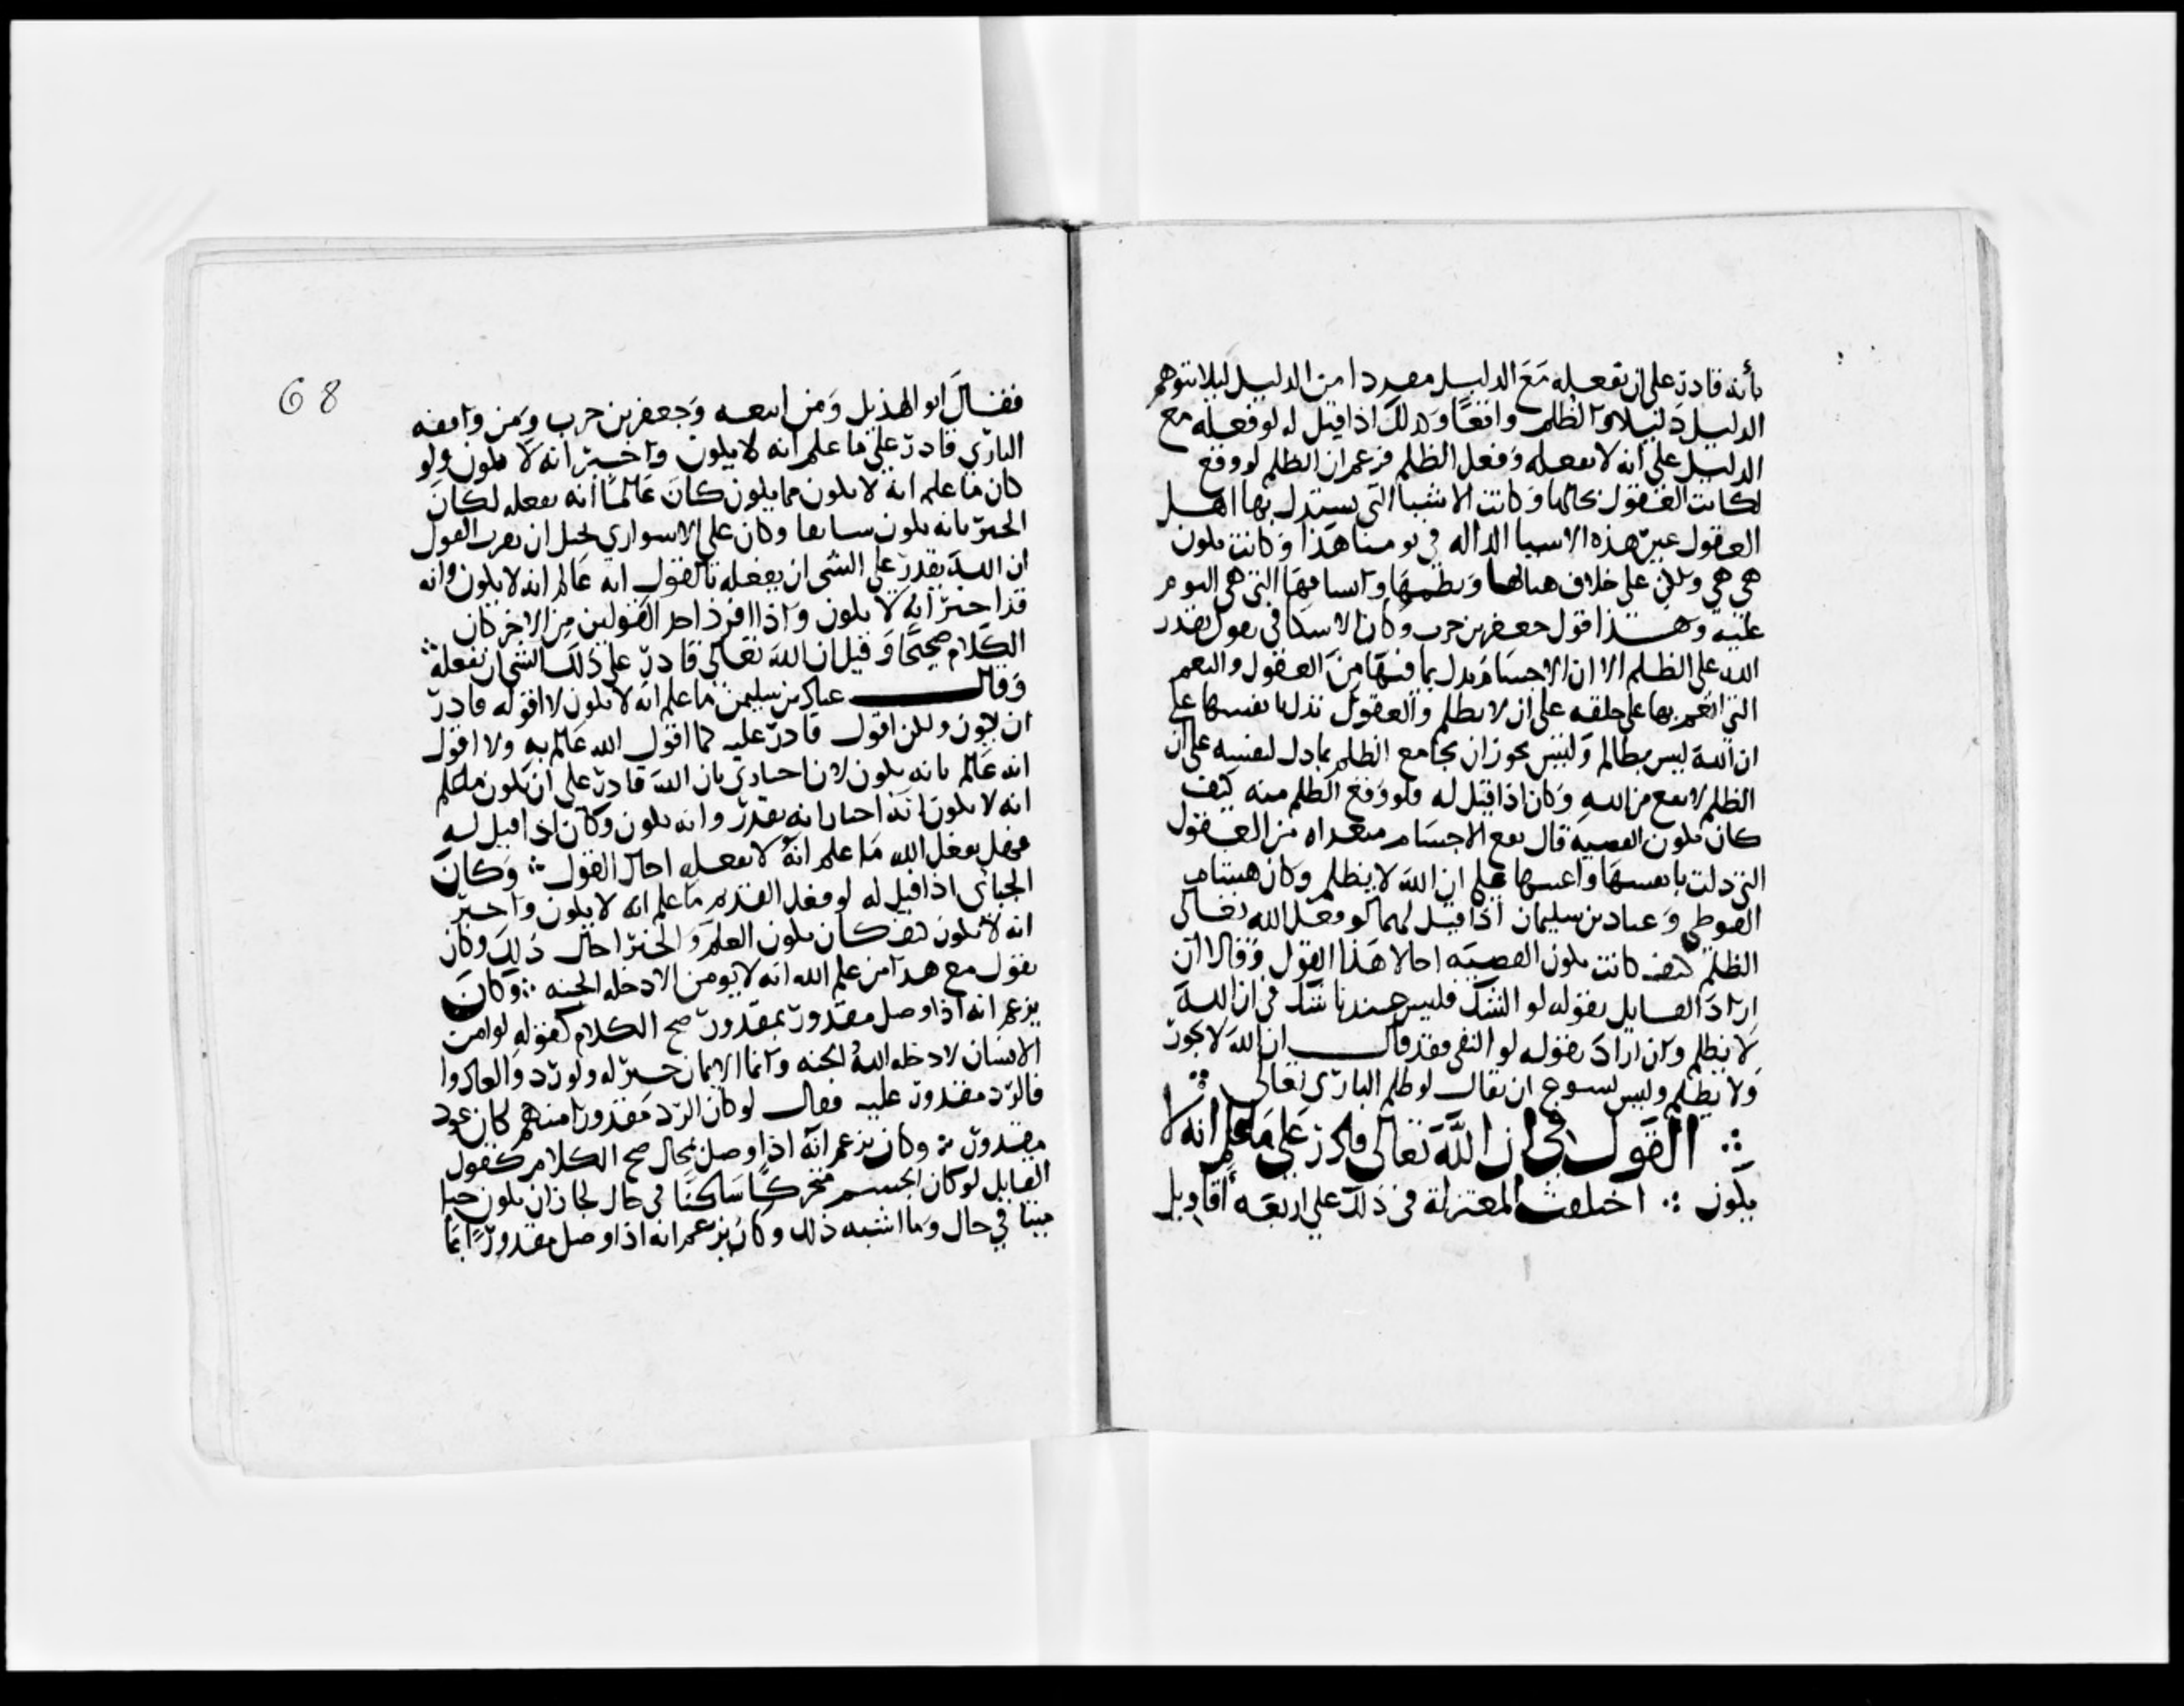 بأنه قادر على ان يفعله مع الدليل مفردا من الدليل ليلا نتوهم
الدليل دليلا والظلم واقعا وكذلك اذا قيل له لو فعله مع
الدليل على انه لا يفعله وفعل الظلم فزعم ان الظلم لو وقع
لكانت العقول بحالها وكانت الاشيا التي يستدل بها اهل
العقول غير هذه الاشيا الداله في يومنا هذا وكانت تكون
هي هي ولكن على خلاف هياتها ونظمها واتساقها التي هي اليوم
عليه وهذا قول جعفر بن حرب وكان الاسكافي يقول يقدر
الله على الظلم الا ان الاجسام تدل بما فيها من العقول والنعم
التي انعم بها على خلقه على ان لا يظلم والعقول تدل بانفسها على
ان الله ليس بظالم وليس يجوز ان يجامع الظلم ما دل لنفسه على ان
الظلم لا يقع من الله وكان اذا قيل له فلو وقع الظلم منه كيف
كان تكون القصة قال يقع الاجسام معراه من العقول
التي دلت بانفسها واعينها على ان الله لا يظلم وكان هشام
الفوطي وعباد بن سليمان اذا قيل لهما لو فعل الله تعالى
الظلم كيف كانت تكون القصه احالا هذا القول وقالا ان
اراد القايل بقوله لو الشك فليس عندنا شك في ان الله
لا يظلم وان اراد بقوله لو النفي فقد قال ان الله لا يجور
ولا يظلم وليس يسوغ ان يقال لو ظلم الباري تعالى
القول في ان الله تعالى قادر على ما علم انه لا
يكون اختلفت المعتزلة في ذلك على اربعة أقاويل
68
فقال ابو الهذيل ومن اتبعه وجعفر بن حرب ومن وافقه
الباري قادر على ما علم انه لا يكون واخبر انه لا يكون ولو
كان ما علم انه لا يكون مما يكون كان عالما انه يفعله لكان
الخبر بانه يكون سابقا وكان علي الاسواري يحيل ان يقرن القول
ان الله يقدر على الشي ان يفعله بالقول انه عالم انه لا يكون وانه
قد اخبر انه لا يكون واذا افرد احد القولين من الاخر كان
الكلام صحيحا وقيل ان الله تعالى قادر على ذلك الشي ان يفعله
وقال عباد بن سليمن ما علم انه لا يكون لا اقوله قادر
ان يكون ولكن اقول قادر عليه كما اقول الله عالم به ولا اقول
انه عالم بانه يكون لان اخباري بان الله قادر على ان يكون ما علم
انه لا يكون انه اخبار انه يقدر وانه يكون وكان اذا قيل له
فهل يفعل الله ما علم انه لا يفعله احال القول وكان
الجبائي اذا قيل له لو فعل القديم ما علم انه لا يكون واخبر
انه لا يكون كيف كان يكون العلم والخبر احال ذلك وكان
يقول مع هذا من علم الله انه لا يومن الادخله الجنه وكان
يزعم انه اذا وصل مقدور بمقدور صح الكلام كقوله لو امن
الانسان لادخله الله الجنه وانما الايمان خير له ولو ردوا لعادوا
فالرد مقدور عليه فقال لو كان الرد مقدورا منهم كان عود
مقدور وكان يزعم انه اذا وصل بحال صح الكلام كقول
القايل لو كان الجسم متحركا ساكنا في حال لجاز ان يكون حيا
ميتا في حال وما اشبه ذلك وكان يزعم انه اذا وصل مقدور